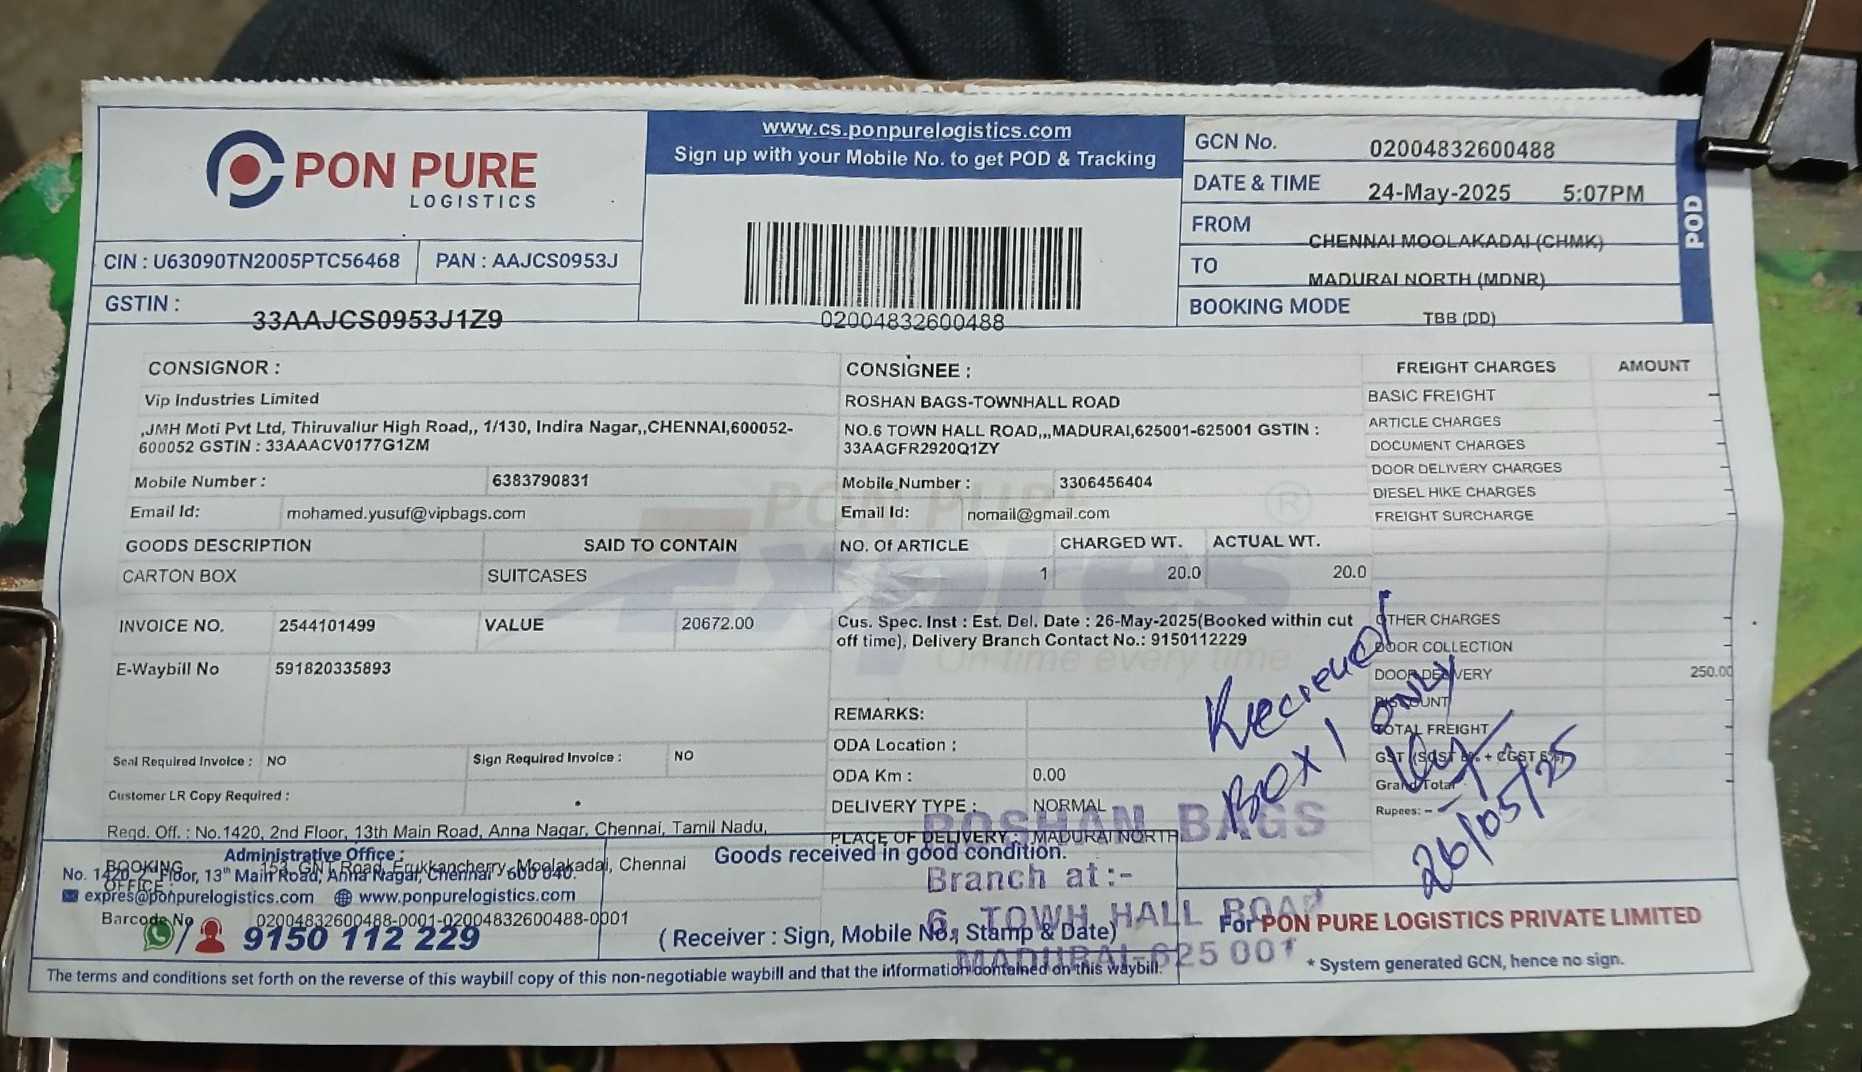 PON PURE
LOGISTICS
www.cs.ponpurelogistics.com
Sign up with your Mobile No. to get POD & Tracking
02004832600488
CIN : U63090TN2005PTC56468
PAN : AAJCS0953J
GSTIN :
33AAJCS0953J1Z9
GCN No. 02004832600488
DATE & TIME 24-May-2025 5:07PM
FROM CHENNAI MOOLAKADAI (CHMK)
TO MADURAI NORTH (MDNR)
BOOKING MODE TBB (DD)
POD
CONSIGNOR :
Vip Industries Limited
,JMH Moti Pvt Ltd, Thiruvallur High Road,, 1/130, Indira Nagar,,CHENNAI,600052-
600052 GSTIN : 33AAACV0177G1ZM
Mobile Number : 6383790831
Email Id: mohamed.yusuf@vipbags.com
CONSIGNEE :
ROSHAN BAGS-TOWNHALL ROAD
NO.6 TOWN HALL ROAD,,,MADURAI,625001-625001 GSTIN :
33AAGFR2920Q1ZY
Mobile Number : 3306456404
Email Id: nomail@gmail.com
GOODS DESCRIPTION SAID TO CONTAIN NO. Of ARTICLE CHARGED WT. ACTUAL WT.
CARTON BOX SUITCASES 1 20.0 20.0
PON PURE
Expres
®
On time every time
INVOICE NO. 2544101499 VALUE 20672.00
E-Waybill No 591820335893
Cus. Spec. Inst : Est. Del. Date : 26-May-2025(Booked within cut
off time), Delivery Branch Contact No.: 9150112229
Seal Required Invoice : NO Sign Required Invoice : NO
Customer LR Copy Required :
REMARKS:
ODA Location :
ODA Km : 0.00
DELIVERY TYPE : NORMAL
PLACE OF DELIVERY : MADURAI NORTH
FREIGHT CHARGES AMOUNT
BASIC FREIGHT -
ARTICLE CHARGES
DOCUMENT CHARGES -
DOOR DELIVERY CHARGES -
DIESEL HIKE CHARGES -
FREIGHT SURCHARGE -
OTHER CHARGES -
DOOR COLLECTION -
DOOR DELIVERY 250.00
DISCOUNT -
TOTAL FREIGHT -
GST (SGST + CGST
Grand Total -
Rupees: -
Received
Box 1 ONLY
26/05/25
Regd. Off. : No.1420, 2nd Floor, 13th Main Road, Anna Nagar, Chennai, Tamil Nadu,
BOOKING
OFFICE :
153, GNT Road, Erukkancherry, Moolakadai, Chennai
Administrative Office :
No. 1420, 2nd Floor, 13th Main Road, Anna Nagar, Chennai - 600 040.
expres@ponpurelogistics.com www.ponpurelogistics.com
Barcode No 02004832600488-0001-02004832600488-0001
9150 112 229
Goods received in good condition.
( Receiver : Sign, Mobile No., Stamp & Date)
ROSHAN BAGS
Branch at :-
6, TOWN HALL ROAD
MADURAI-625 001
For PON PURE LOGISTICS PRIVATE LIMITED
* System generated GCN, hence no sign.
The terms and conditions set forth on the reverse of this waybill copy of this non-negotiable waybill and that the information contained on this waybill.